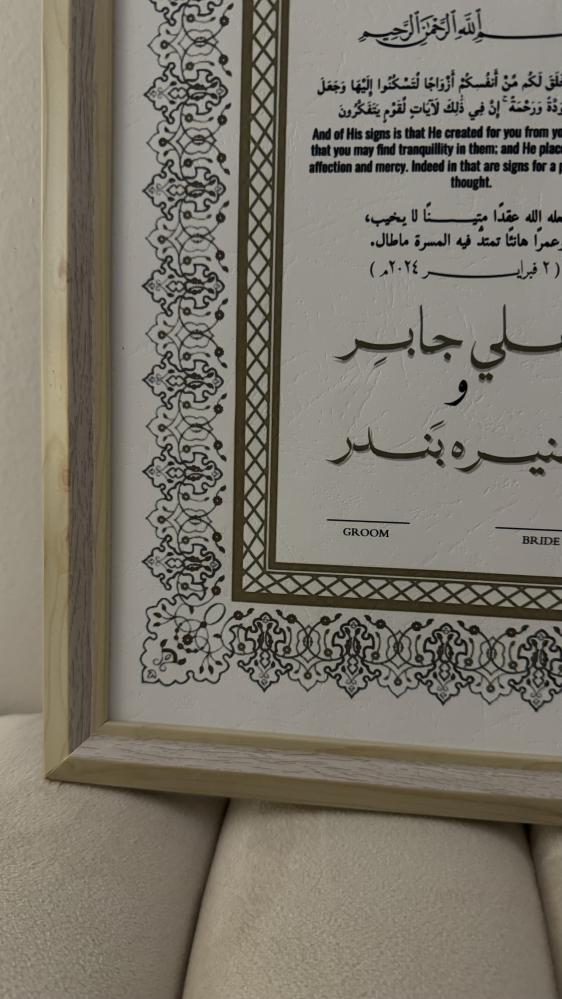 الله الرحمن الرحيم
لَكُم مِّنْ أَنفُسِكُمْ أَزْوَاجًا لِّتَسْكُنُوا إِلَيْهَا وَجَعَلَ
وَرَحْمَةً ۚ إِنَّ فِي ذَٰلِكَ لَآيَاتٍ لِّقَوْمٍ يَتَفَكَّرُونَ
And of His signs is that He created for you from yo
that you may find tranquillity in them; and He plac
affection and mercy. Indeed in that are signs for a p
thought.
الله عقدًا متيـــــنًا لا يخيب،
وعمرًا هانئًا تمتدّ فيه المسرة ماطال.
( ٢ فبرايـــــــر ٢٠٢٤م )
جابـر
و
بَنـدر
GROOM
BRIDE